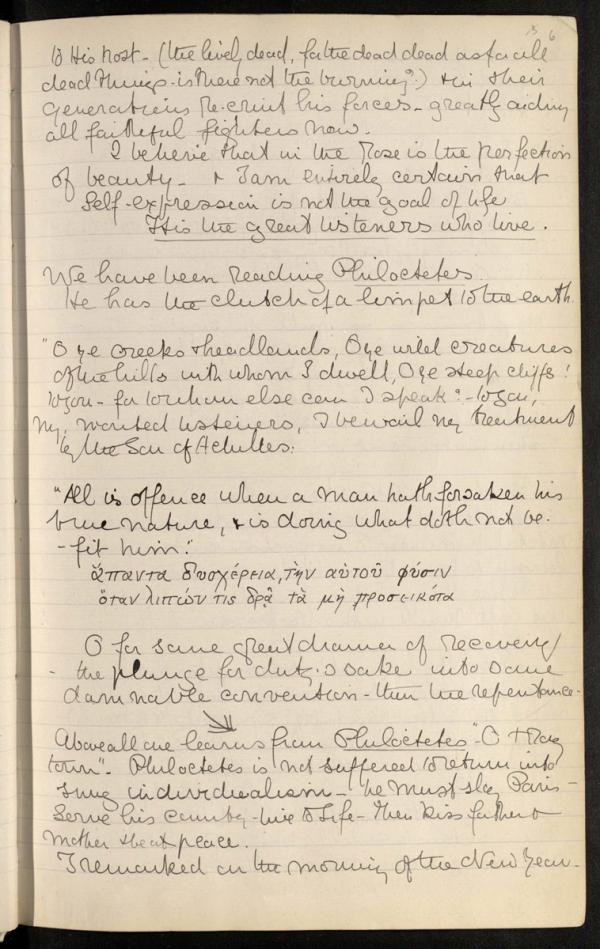 6
to His host - (the lively dead, for the dead dead as for all
dead things - is there not the burning?) & in their
generations re-cruit his forces - greatly aiding
all faithful fighters now.
I believe that in the Rose is the perfection
of beauty - & I am entirely certain that
Self-expression is not the goal of life
It is the great listeners who live.
We have been reading Philoctetes.
He has the clutch of a limpet to the earth.
"O ye creeks & headlands, O ye wild creatures
of the hills with whom I dwell, O ye steep cliffs!
to you - for to whom else can I speak? - to you,
my, wonted listeners, I bewail my treatment
by the Son of Achilles:
"All is offence when a man hath forsaken his
true nature, & is doing what doth not be-
-fit him."
ἅπαντα δυσχέρεια, τὴν αὑτοῦ φύσιν
ὅταν λιπών τις δρᾷ τὰ μὴ προσεικότα
O for some great drama of recovery/
- the plunge for duty's sake into some
damnable convention - then the repentance -
Above all one learns from Philoctetes "O
town". Philoctetes is not suffered to return into
snug individualism - he must slay Paris -
Serve his country - live to Life - then kiss father &
mother & be at peace.
I remarked on the morning of the New Year -